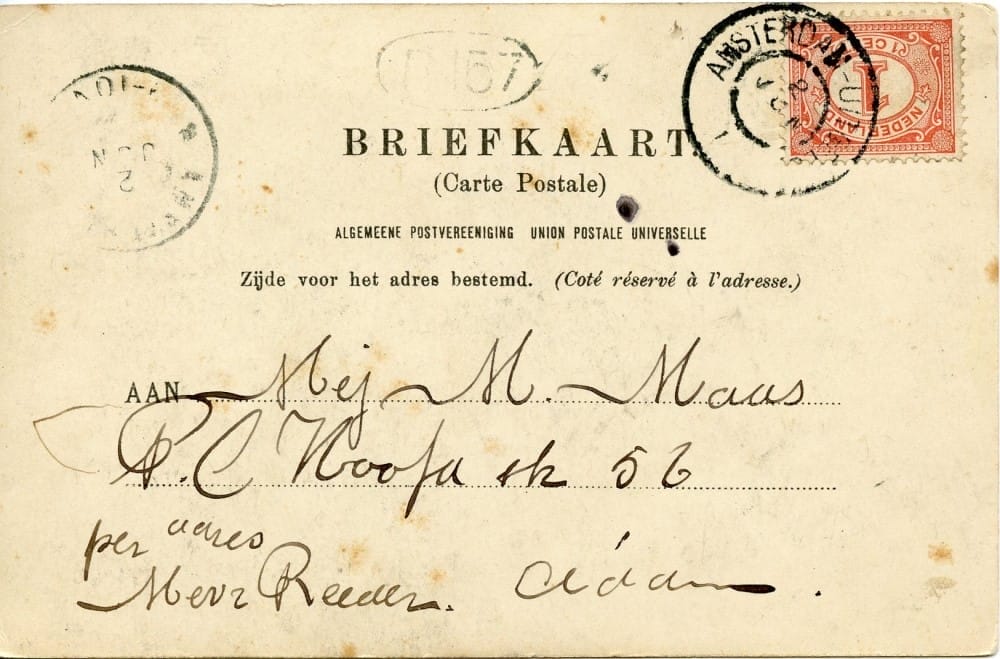 157
AMSTERDAM
1 CENT
1
NEDERLAND
BRIEFKAART.
(Carte Postale)
ALGEMEENE POSTVEREENIGING UNION POSTALE UNIVERSELLE
Zijde voor het adres bestemd. (Coté réservé à l'adresse.)
2 JUN
AAN Mej M. Maas
P.C Hoofd sk 56
per adres
Mevr Reeder.
A'dam